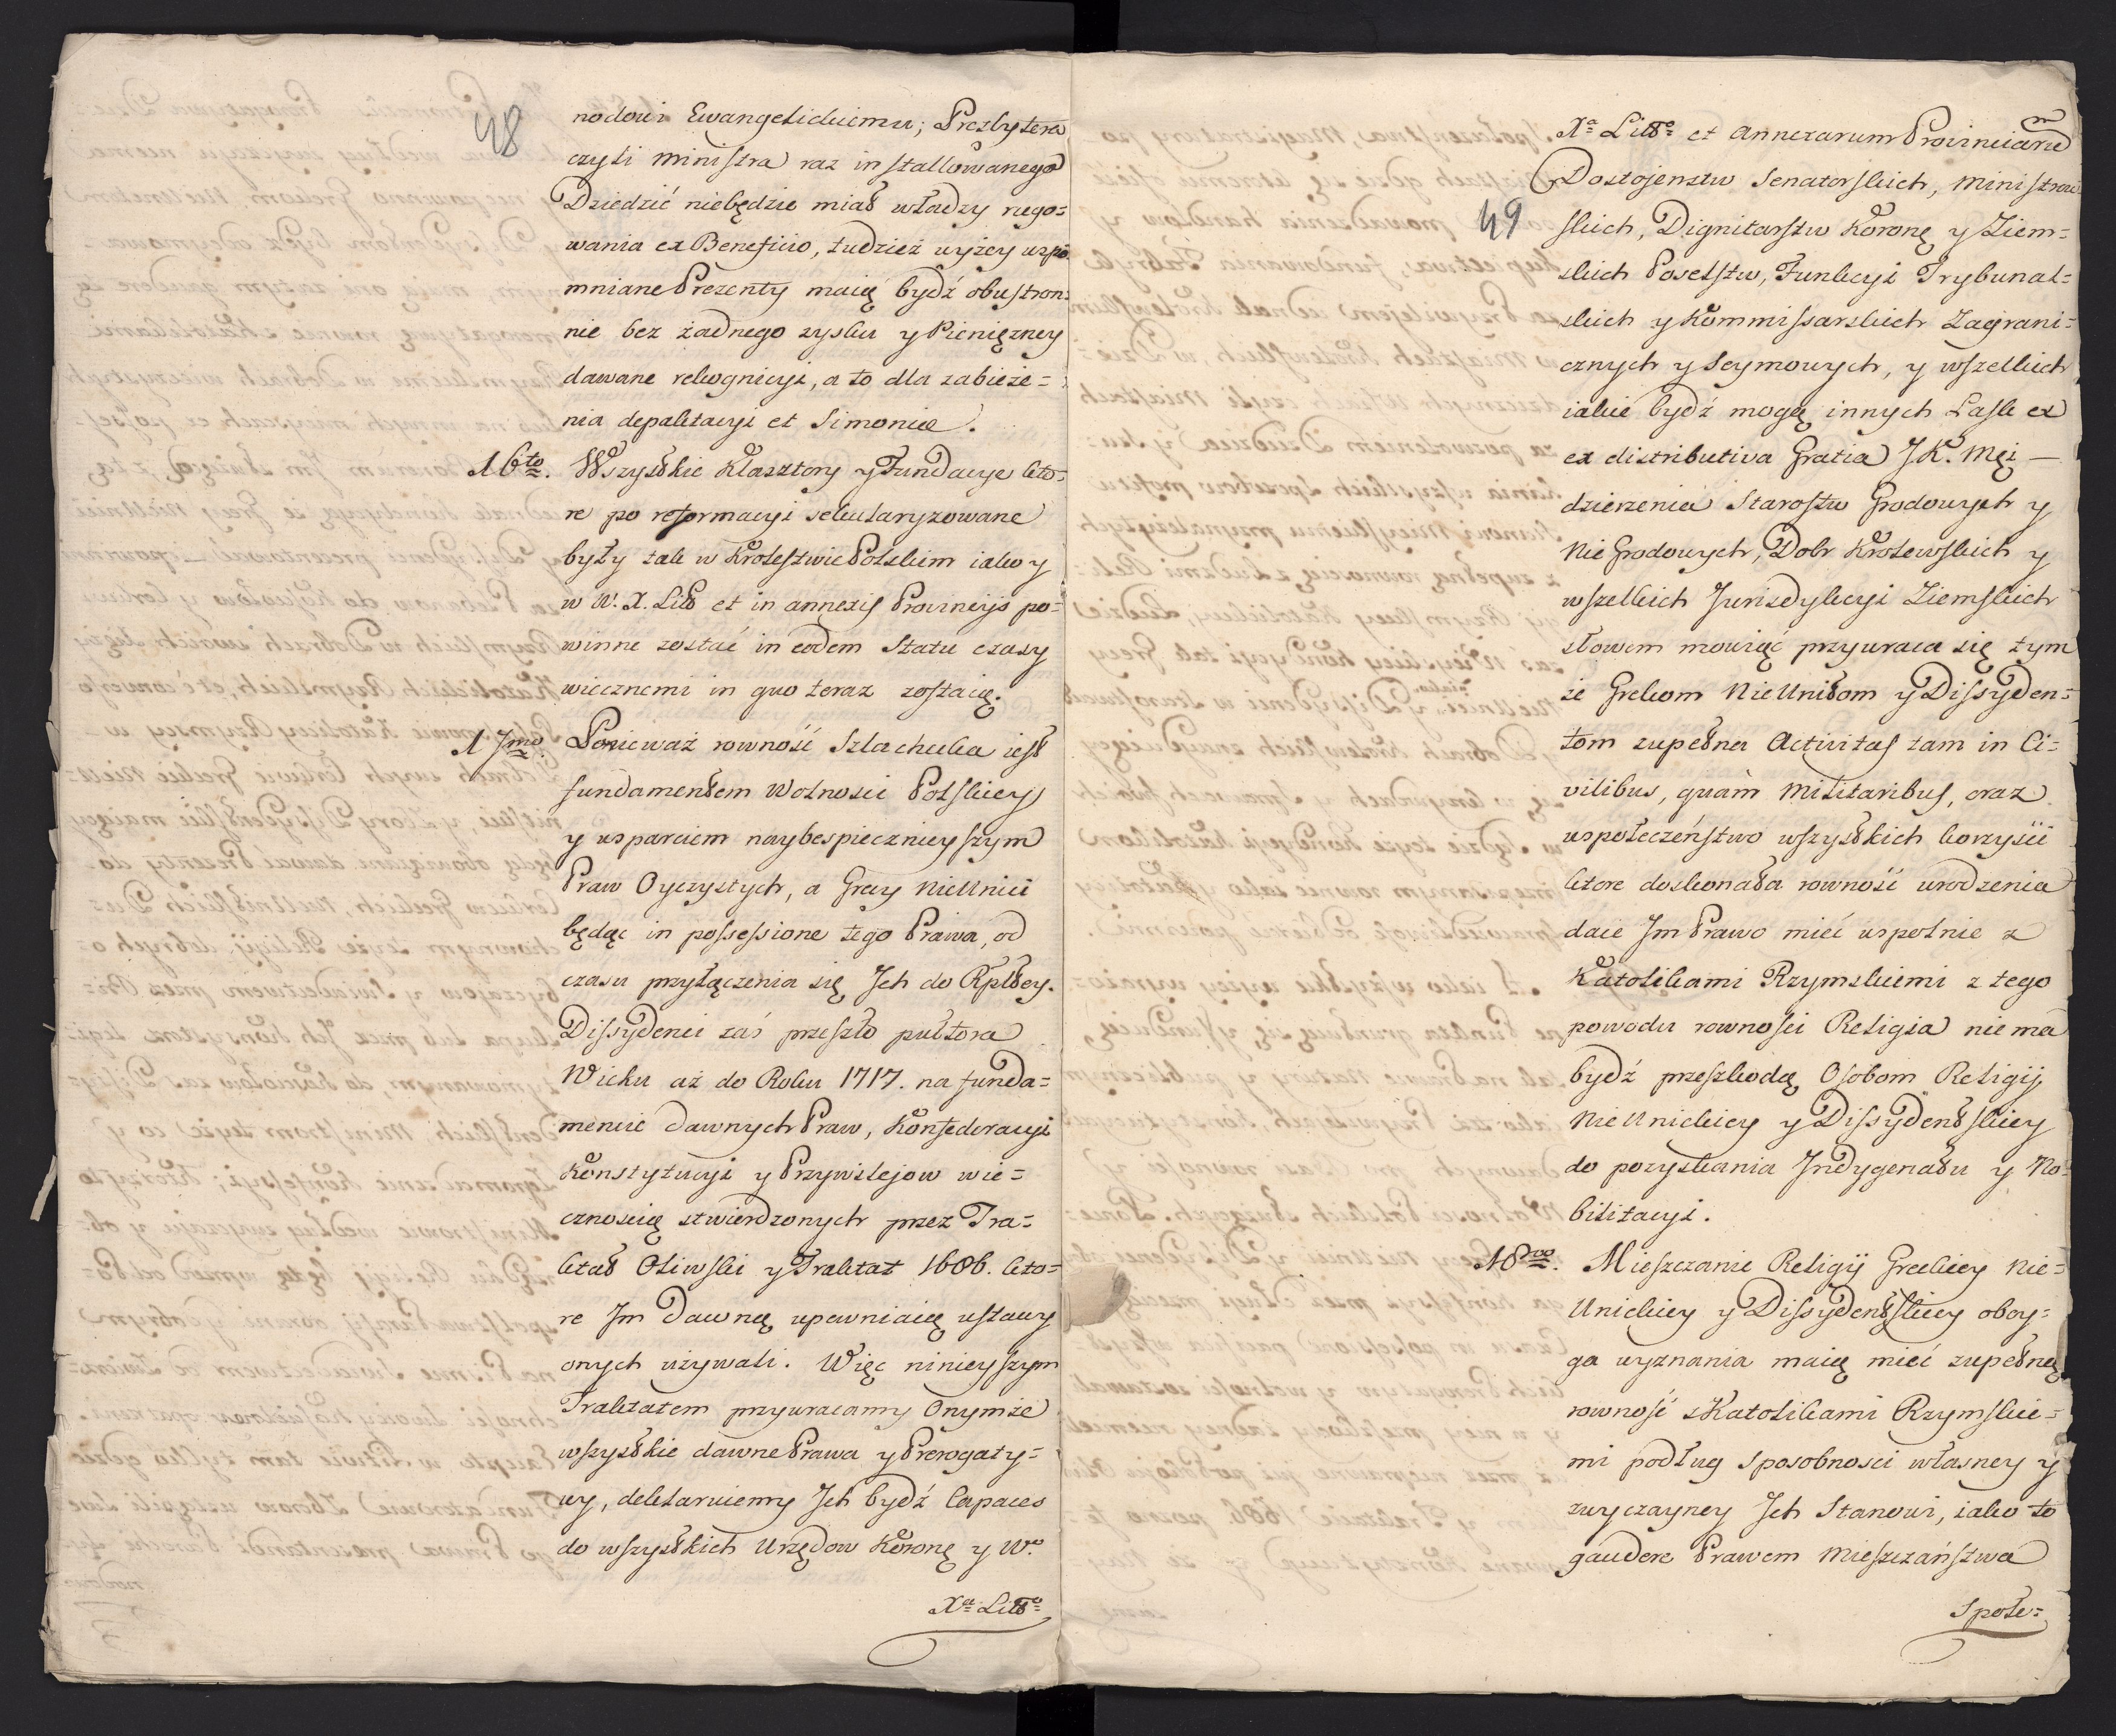 48
nodowi Ewangelickiemu; Prezbytera
czyli Ministra raz installowanego
Dziedzić niebędzie miał władzy rugo=
wania ex Beneficio, tudzież wyżey wspo
mniane Prezenty maią bydź obustron=
nie bez żadnego zysku y Pieniężney
dawane rekognicyi, a to dla zabieże=
nia depaktacyi et Simoniæ.
16to. Wszystkie Klasztory y Fundacye kto=
re po reformacyi sekularyzowane
były tak w Krolestwie Polskim iako y
w W. X. Litt et in annexis Provincijs po=
winne zostać in eodem Statu czasy
wiecznemi in quo teraz zostaią.
17mo. Ponieważ rowność Szlachecka iest
fundamentem Wolnosci Polskiey
y wsparciem naybespiecznieyszym
Praw Oyczystych, a Grecy Nieunici
będąc in possessione tego Prawa, od
czasu przyłączenia się Ich do Rpltey.
Dissydenci zaś przeszło pułtora
Wieku aż do Roku 1717. na funda=
mencie dawnych Praw, Konfederacyi
Konstytucyi y Przywilejow wie=
cznoscią stwierdzonych przez Tra=
ktat Oliwski y Traktat 1686. kto=
re Im Dawną upewniaią ustawy
onych używali. Więc ninieyszym
Traktatem przywracamy Onymże
wszystkie dawne Prawa y Prerogaty=
wy, deklaruiemy Ich bydź Capaces
do wszystkich Urzędow Koronę y Wo
Xa Litto
49
Xa Litto et Annexarum Provinciarum
Dostojenstw Senatorskich, Ministrow
skich, Dignitarstw Koronę y Ziem=
skich Poselstw, Funkcyi Trybunal=
skich y Kommissarskich Zagrani=
cznych y Seymowych, y wszelkich
iakie bydź mogą innych Łask ex
ex distributiva Gratia J K. Mci —
dzierzenia Starostw Grodowych y
Nie Grodowych, Dobr Krolewskich y
wszelkich Jurisdykcyi Ziemskich
słowem mowiąc przywraca się tym
że Grekom NieUnitom y Dissyden=
tom zupełna Activitas tam in Ci=
vilibus, quàm Militaribus, oraz
wspołeczeństwo wszystkich korzyści
ktore doskonała rowność urodzenia
daie Im Prawo mieć wspolnie z
Katolikami Rzymskiemi z tego
powodu rownosci Religia nie ma
bydź przeszkodą Osobom Religij
NieUnickiey y Dissydentskiey
do pozyskania Indygenatu y No=
bilitacyi.
18vo. Mieszczanie Religij Greckiey Nie=
Unickiey y Dissydentskiey oboy=
ga wyznania maią mieć zupełną
rowność z Katolikami Rzymskie=
mi podług sposobnosci własney y
zwyczayney Ich Stanowi, iako to
gaudere Prawem Mieszczaństwa
Społe=